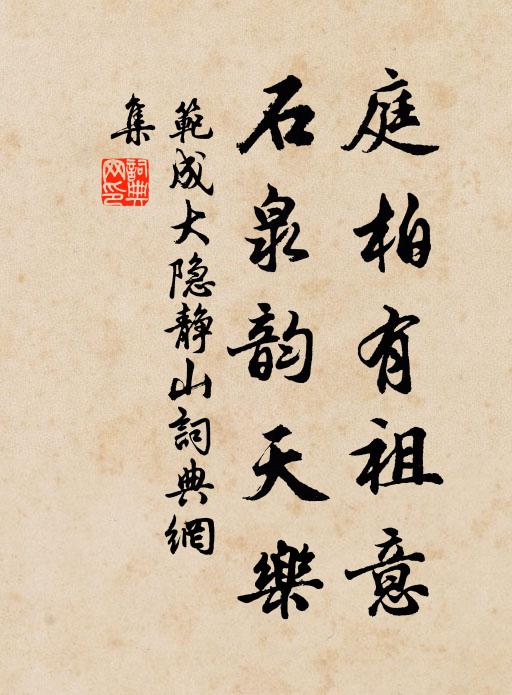 庭柏有祖意
石泉韵天樂
範成大隐静山詞典網
集
詞典网印